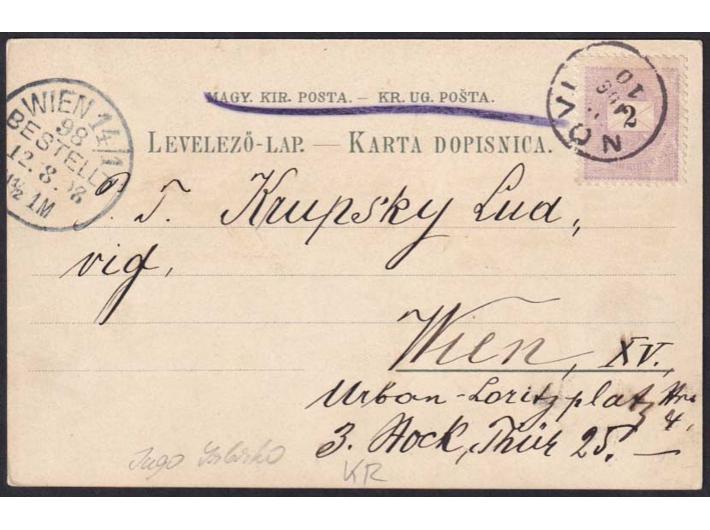 MAGY. KIR. POSTA. — KR. UG. POŠTA.
LEVELEZŐ-LAP. — KARTA DOPISNICA.
WIEN 14/1
98
BESTELLT
12. 8. 98
1M
NOVI
10
2
P. T. Krupsky Lud,
vig,
Wien, XV.
Urban-Loritzplatz Nro
4,
3. Stock, Thür 25. —
KR